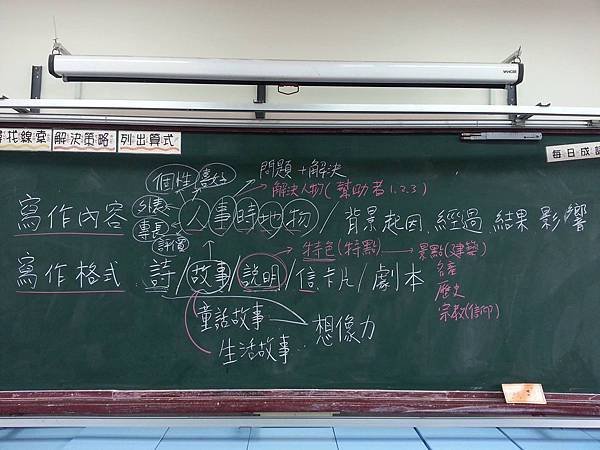 找線索 解決策略 列出算式
每日成語
個性 喜好
問題+解決
解決人物(幫助者1.2.3)
外表
專長
評價
寫作內容 人事時地物/背景起因.經過 結果 影響
特色(特點)→景點(建築)
寫作格式.詩/故事/說明/信.卡片/劇本
名產
歷史
宗教(信仰)
童話故事
生活故事
想像力